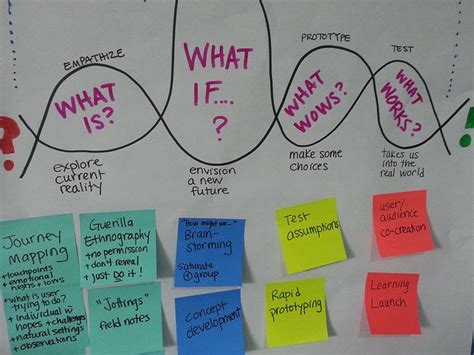 EMPATHIZE
PROTOTYPE
TEST
WHAT
IS?
WHAT
IF....
?
WHAT
WOWS?
WHAT
WORKS?
?
explore
current
reality
envision
a new
future
make some
choices
takes us
into the
real world
Journey
Mapping
+touchpoints
+emotional
highs + lows
+what is user
trying to do?
+ individual w
hopes + challenges
+natural settings
+observations
Guerilla
Ethnography
+no permission
+don't reveal
+just do it!
"Jottings"
field notes
"How might we..."
Brain-
storming
saturate
group
Concept
development
Test
assumptions
Rapid
prototyping
user/
audience
co-creation
Learning
Launch